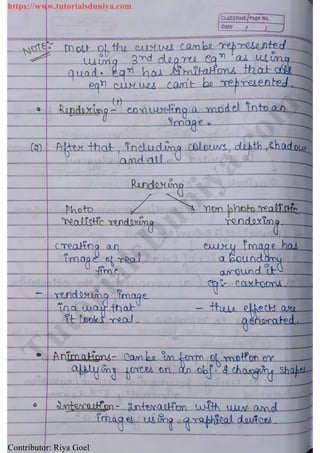 https://www.tutorialsduniya.com
CLASSTIME Page No.
Date / /
NOTE:- most of the curves can be represented
using 3rd degree eqn as using
quad. eqn has limitations that all
eqn curves can't be represented.
• Rendering - (1) converting a model into an
image.
(2) After that, including colours, depth, shadow
and all.
Rendering
Photo realistic rendering
non photo realistic rendering
creating an image of real time.
every image has a boundary around it
eg:- cartoons.
- rendering image in a way that it looks real.
- these effects are generated.
• Animations- can be in form of motion or
applying forces on an obj. & changing shapes
• Interaction- Interaction with user and
images using graphical devices.
TutorialsDuniya.com
Contributor: Riya Goel